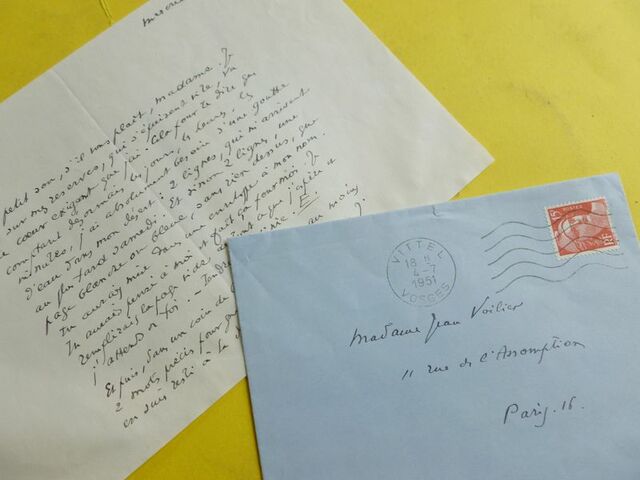 mercre
petit son, s'il vous plaît, madame. Je
sur mes réserves, qui s'épuisent vite, vu
le cœur exigent que j'ai. Cela pour te dire que
comptant désormais les jours, les heures, les
minutes, j'ai absolument besoin d'une goutte
d'eau dans mon désert. 2 lignes, qui m'arrivent
au plus tard samedi. Et sinon 2 lignes, une
page blanche ou bleue, sans rien dessus, que
tu auras mise dans une enveloppe à mon nom.
Tu auras pensé à moi et fait ça pour moi. Je
remplirai la page vide de tout ce que j'espère et
j'attends de toi. — Tendre
Et puis, dans un coin du
2 mots précis pour
en suis resté à La
au moins
VITTEL
18 H
4-7
1951
VOSGES
15F
POSTES
RF
Madame Jean Voilier
11 rue de l'Assomption
Paris. 16.